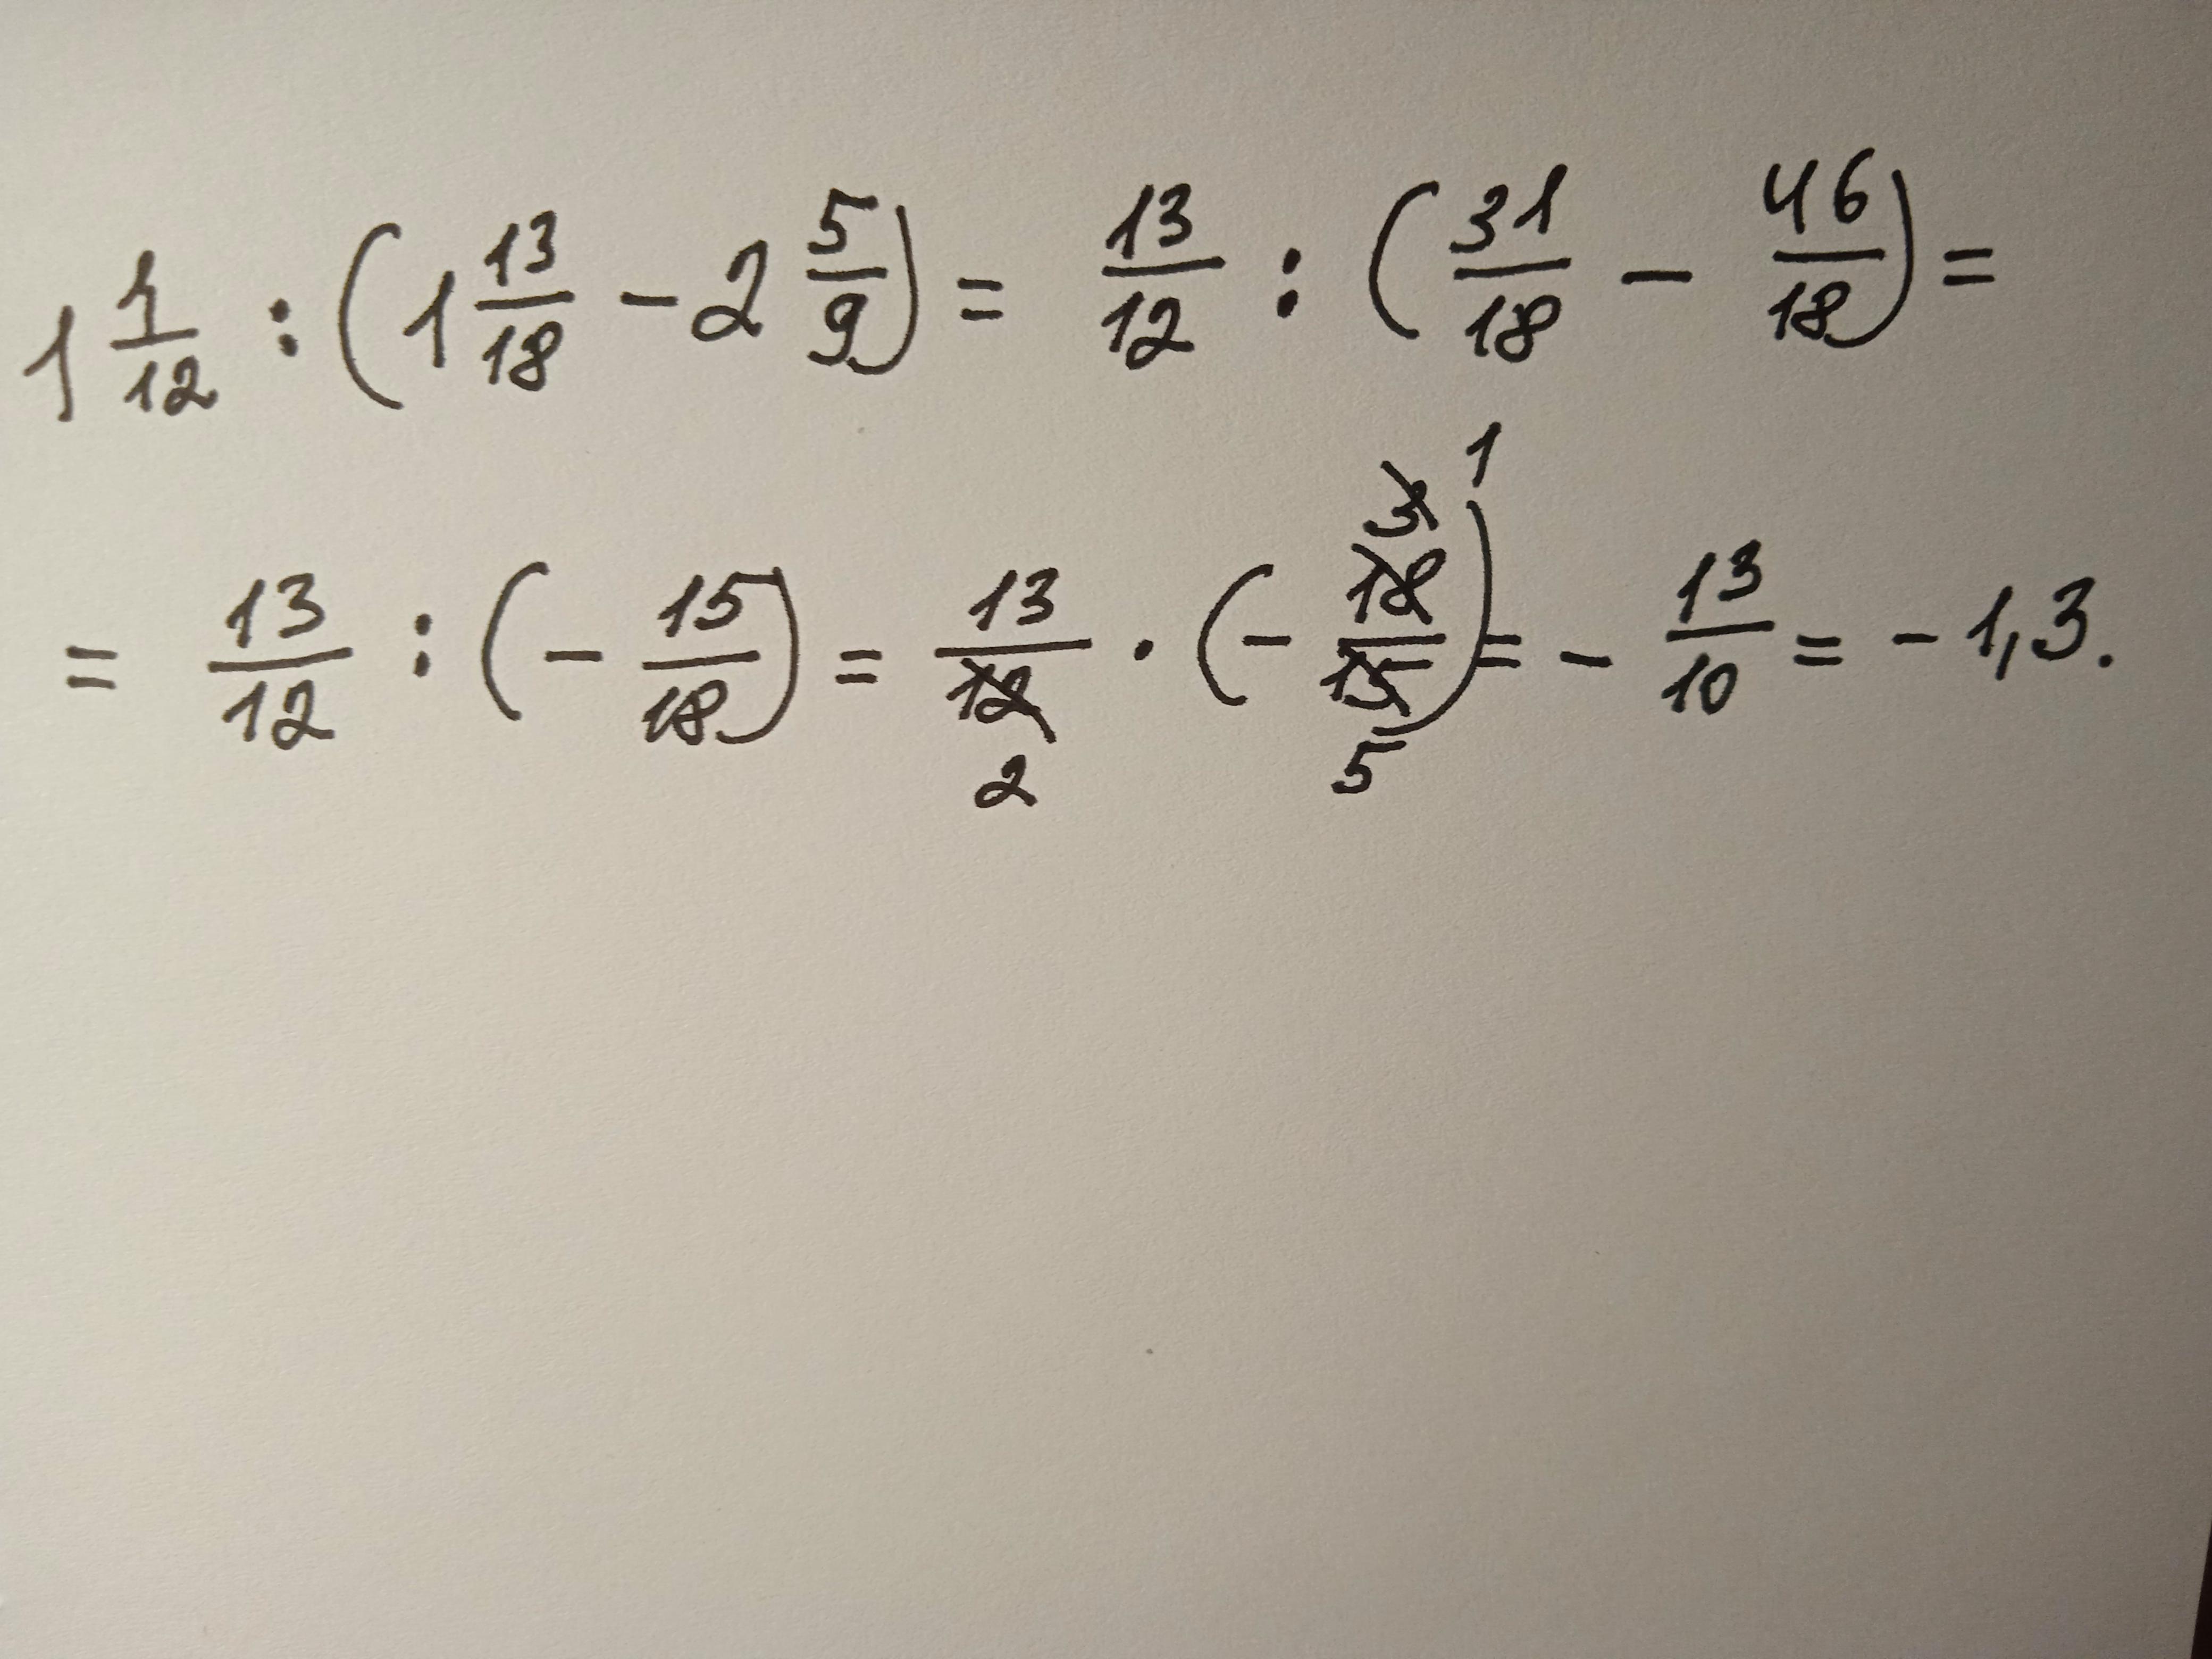 1 1/12 : (1 13/18 - 2 5/9) = 13/12 : (31/18 - 46/18) =
= 13/12 : (- 15/18) = 13/12 2 · (- 1 3 18/15 5) = - 13/10 = - 1,3.